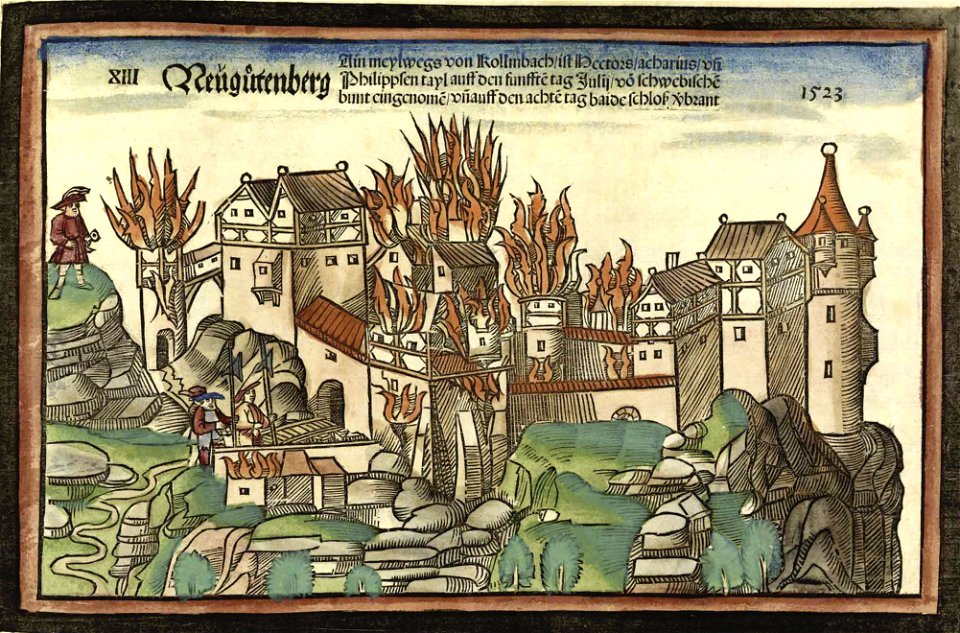 XIII Neũgůtenberg
Ain meylwegs von Kollmbach/ist Hectors/acharius/vñ
Philippsen tayl auff den funfftẽ tag Julij/võ schwebischẽ
bunt eingenomẽ/vñ auff den achtẽ tag baide schloß v̈brant
1523